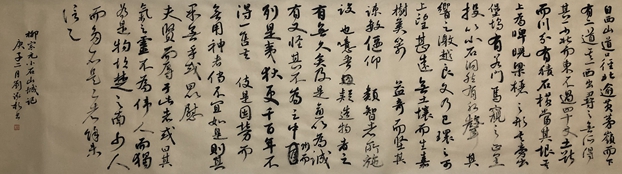 自西山道口径北逾黄茅岭而下
有二道其一西出寻之无所得
其一少北而东不过四十丈土断
而川分有积石横当其垠其
上为睥睨梁欐之形其旁出
堡坞有若门焉窥之正黑
投以小石洞然有水声其
响之激越良久乃已环之可
上望甚远无土壤而生嘉
树美箭益奇而坚其
疏数偃仰类智者所施
设也噫吾疑造物者之
有无久矣及是愈以为诚
有又怪其不为之中州而
列是夷狄更千百年不
得一售其伎是固劳而
无用神者倘不宜如是则其
果无乎或曰以慰
夫贤而辱于此者或曰其
气之灵不为伟人而独
为是物故楚之南少人
而多石是二者余未
信之
柳宗元小石城记
庚子二月刘